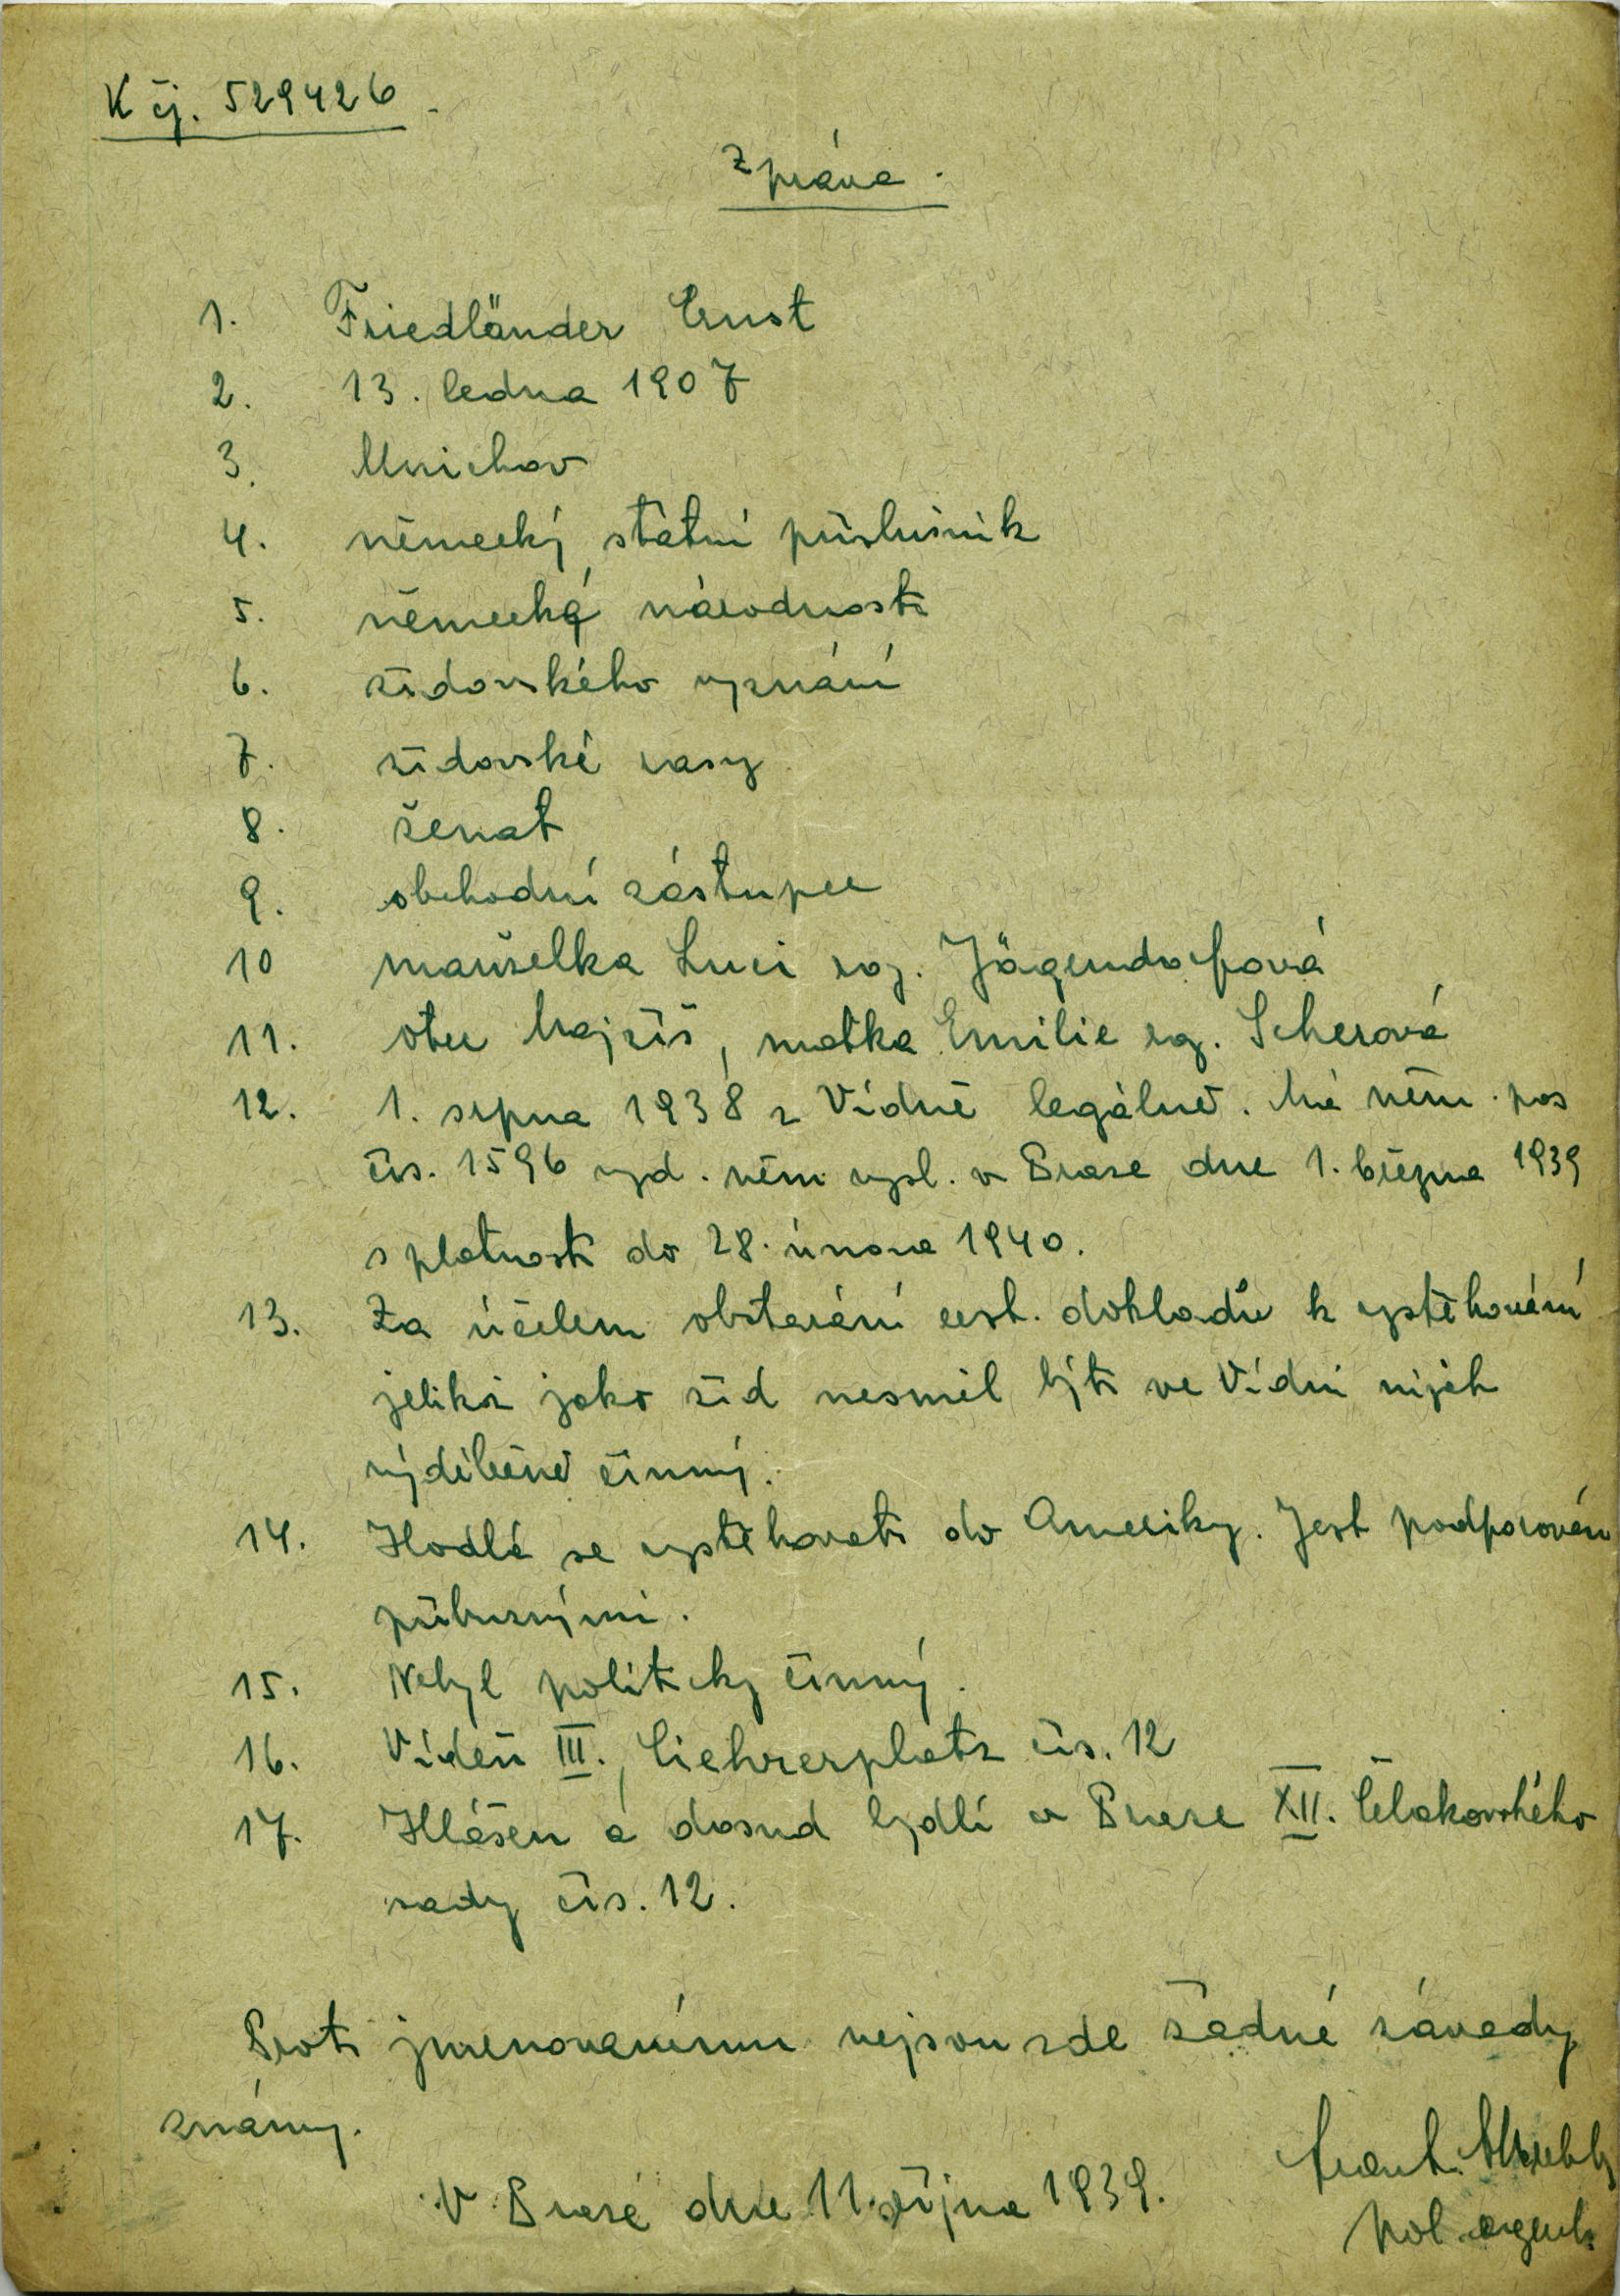 K čj. 529426.
Zpráva.
1. Friedländer Ernst
2. 13. ledna 1907
3. Mnichov
4. německý státní příslušník
5. německá národnost
6. židovského vyznání
7. židovské rasy
8. ženat
9. obchodní zástupce
10 manželka Luci roz. Jägendorfová
11. otec Mojžíš, matka Emilie roz. Scherová
12. 1. srpna 1938 z Vídně legálně. Má něm. pas
čís. 1596 vyd. něm. vysl. v Praze dne 1. března 1939
s platností do 28. února 1940.
13. Za účelem obstarání cest. dokladů k vystěhování
jelikož jako žid nesměl býti ve Vídni nijak
výdělečně činný.
14. Hodlá se vystěhovati do Ameriky. Jest podporován
příbuznými.
15. Nebyl politicky činný.
16. Vídeň III., čís. 12
17. Hlášen a dosud bydlí v Praze XII. Čelakovského
sady čís. 12.
Proti jmenovanému nejsou zde žádné závady
známy.
V Praze dne 11. října 1939.
Frant.
pol. agent.